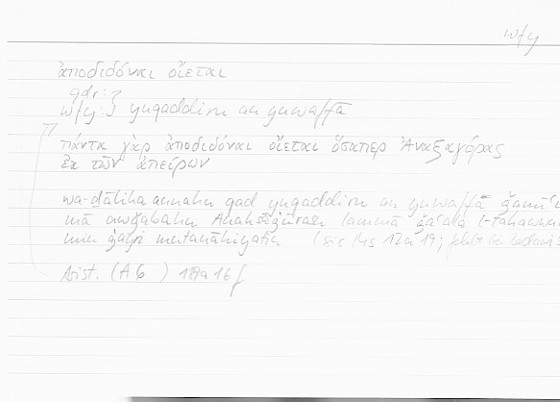 wfy
ἀποδιδόναι οἴεται
qdr:
wfy: yuqaddiru an yuwaffā
πάντα γὰρ ἀποδιδόναι οἴεται ὅσαπερ Ἀναξαγόρας
ἐκ τῶν ἀπείρων
wa-ḏālika annahu qad yuqaddiru an yuwaffā ǧamīʿ
mā awǧabahu Anaksāġūras lammā ǧaʿala l-
min ġayri mutanāhiyatin (sic Ms 12a19; fehlt bei
Arist. (A6) 188a16f